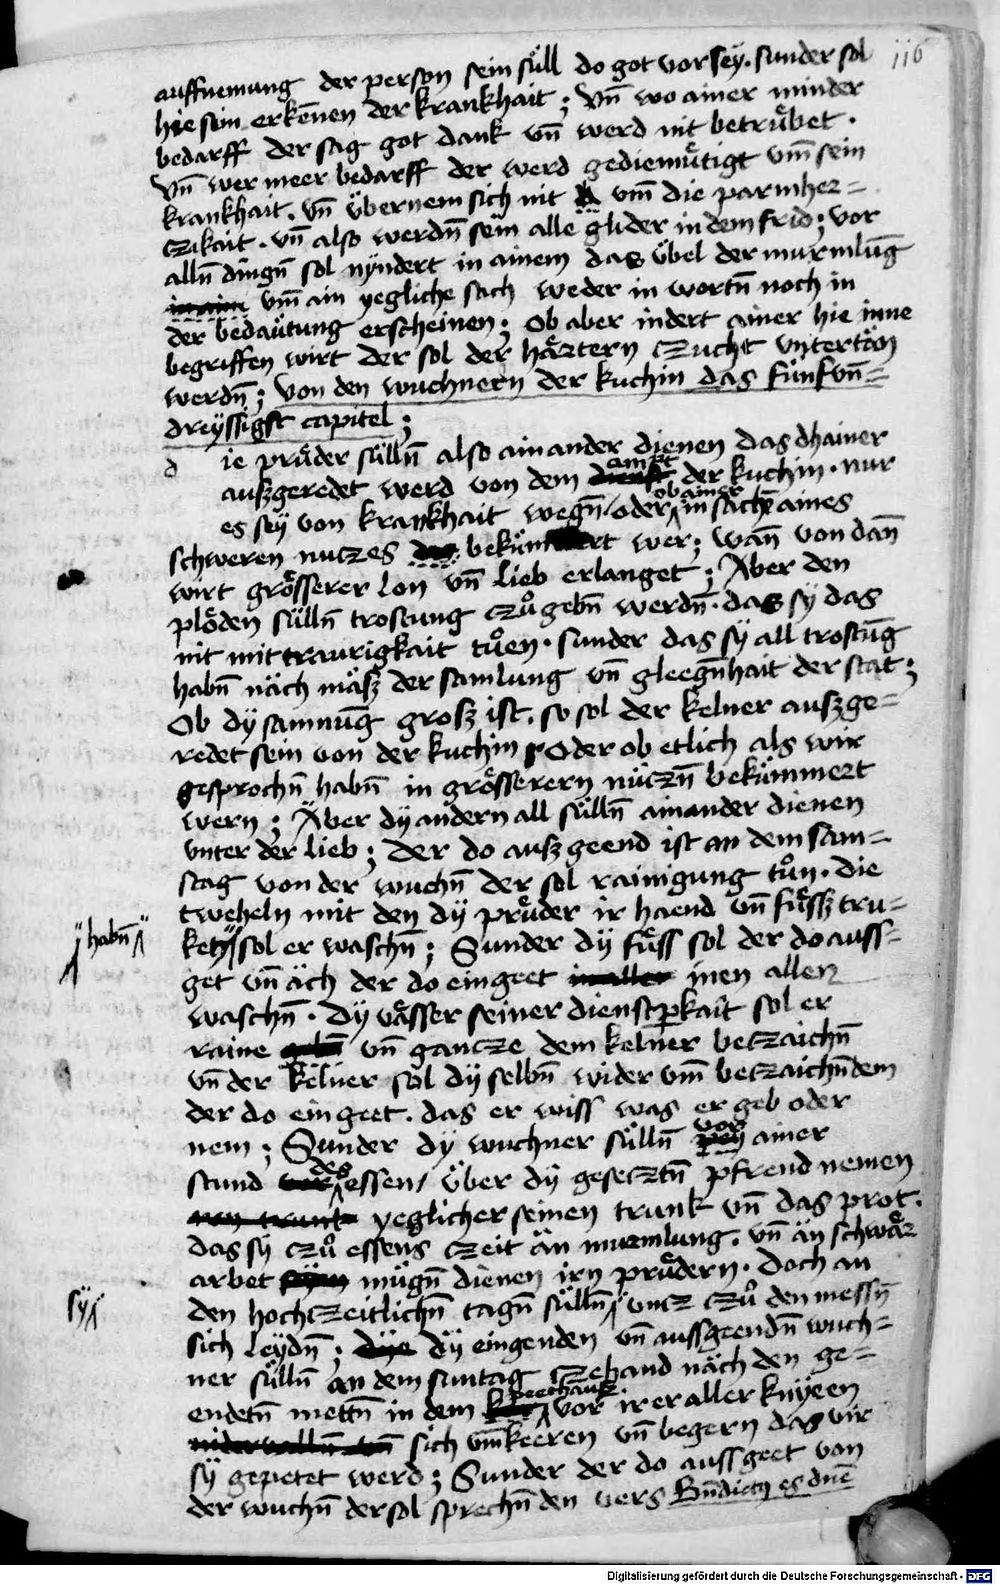 116
auffnemung der person sein süll do got vor sey. sunder sol
hie sein erkēnen der krankhait; Vn̄ wo ainer minder
bedarff der sag got dank vn̄ werd nit betrübet.
Vn̄ wer meer bedarff der werd gediemütigt vm̄ sein
krankhait. vn̄ übernem sich nit vm̄ die parmher=
czikait. vn̄ also werdn̄ sein alle glider in dem frid; vor
alln̄ dingn̄ sol nyndert in ainem das übel der murmlūg
vm̄ ain yegliche sach weder in wortn̄ noch in
der bedaütung erscheinen; Ob aber indert ainer hie inne
begriffen wirt der sol der härtern czucht vntertön
werdn̄; Von den wuchnern der kuchin das fünfvn̄=
dreyssigst capitel;
d ie prüder sülln̄ also ainander dienen das dhainer
auszgeredet werd von dem ampt der kuchin. nur
es sey von krankhait wegn̄/oder ob ainer in sachē aines
schweren nuczes bekümert wer; wān von dān
wirt grösserer lon vn̄ lieb erlanget; Aber den
plöden sülln̄ trostung czů gebn̄ werdn̄. das sy das
nit mit traurigkait tůen. sunder das sy all trostūg
habn̄ näch mäsz der samlung vn̄ gleegn̄hait der stat;
Ob dy samnūg grosz ist. so sol der kelner auszge=
redet sein von der kuchin Oder ob etlich als wir
gesprochn̄ habn̄ in grösserern nüczn̄ bekümmert
wern; Aber dy andern all sülln̄ ainander dienen
vnter der lieb; Der do auszgeend ist an dem sam=
stag von der wuchn̄ der sol rainigung tůn. die
tweheln mit den dy prüder ir haend vn̄ füssz tru=
habn̄
ketn sol er waschn̄; Sunder dy füss sol der do auss=
get vn̄ äch der do eingeet inen allen
waschn̄. Dy vässer seiner dienstpkait sol er
raine vn̄ gancze dem kelner betzaichn̄
vn̄ der kelner sol dy selbn̄ wider vm̄ betzaichn̄ dem
der do eingeet. das er wiss was er geb oder
nem; Sunder dy wuchner sülln̄ vor ainer
stund des essen/ über dy gesecztn̄ pfrend nemen
yeglicher seinen trunk vn̄ das prot.
das sy czů essens czeit än murmlung. vn̄ än schwär
arbet mügn̄ dienen irn prüdern. Doch an
sy
den hochczeitlichn̄ tagn̄ sülln̄ vncz czů den messn̄
sich leydn̄; dy eingenden vn̄ aussgeendn̄ wuch=
ner sülln̄ an dem suntag czehand näch den ge=
endetn̄ mettn̄ in dem peethaus vor ir er aller knyeen
sich vm̄keeren vn̄ begern das vür
sy gepetet werd; Sunder der do aussgeet von
der wuchn̄ der sol sprechn̄ den vers Bn̄dictꝰ es dnē
Digitalisierung gefördert durch die Deutsche Forschungsgemeinschaft - DFG